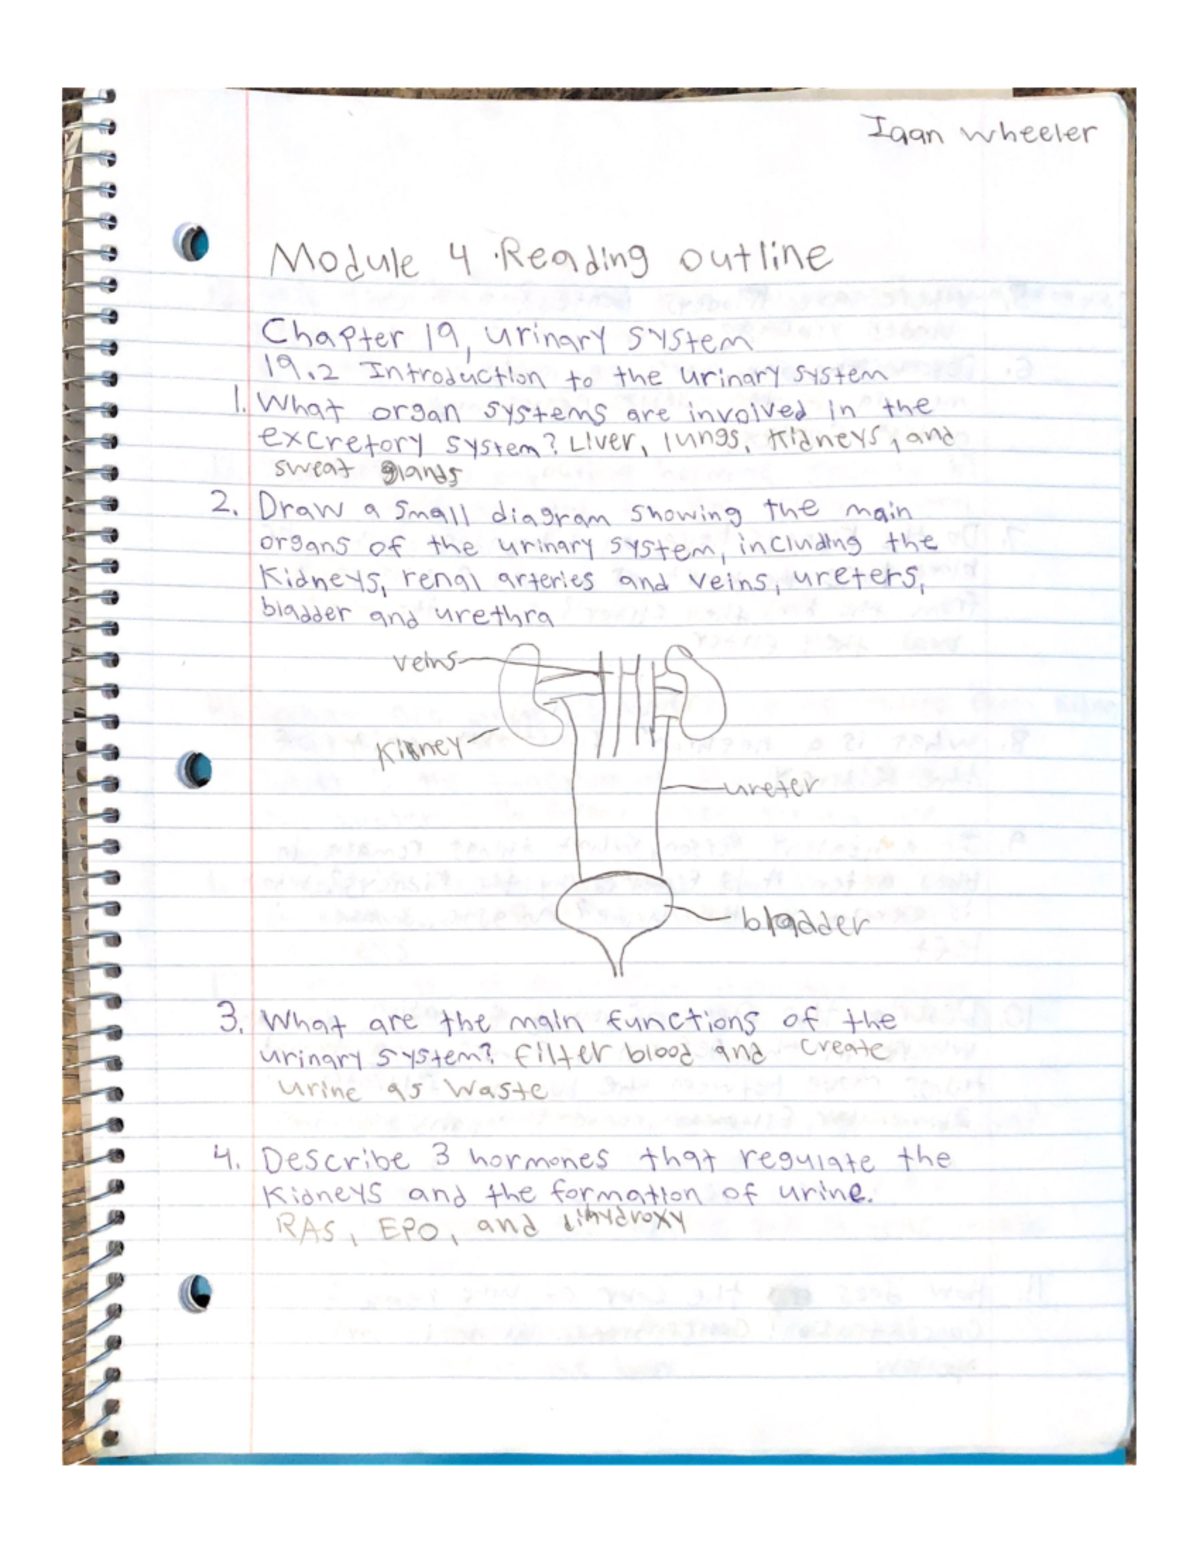 Iaan Wheeler
Module 4 Reading outline
Chapter 19, Urinary system
19.2 Introduction to the urinary system
1. What organ systems are involved in the
excretory system? Liver, lungs, Kidneys, and
sweat glands
2. Draw a small diagram showing the main
organs of the urinary system, including the
Kidneys, renal arteries and veins, ureters,
bladder and urethra
veins
Kidney
ureter
bladder
3. What are the main functions of the
urinary system? filter blood and create
urine as waste
4. Describe 3 hormones that regulate the
Kidneys and the formation of urine.
RAS, EPO, and dihydroxy